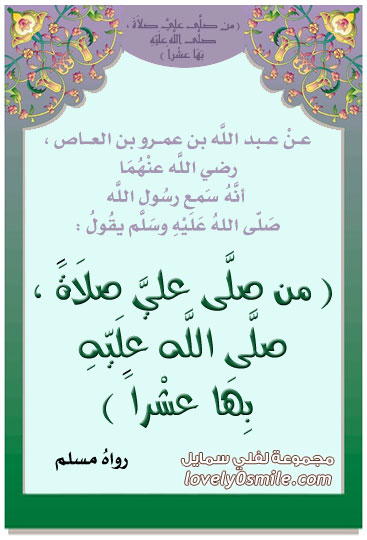 (من صلَّى عليَّ صلاَةً ،
صلَّى اللَّه علَيّهِ
بِهَا عشْراً )
عـنْ عـبد اللَّه بن عمـرو بن العـاص ،
رضي اللَّه عنْهُمَا
أنَّهُ سَمع رسُول اللَّه
صَلّى اللهُ عَلَيْهِ وسَلَّم يقُولُ :
( من صلَّى عليَّ صلاَةً ،
صلَّى اللَّه علَيّهِ
بِهَا عشْراً )
رواهُ مسلم
مجموعة لفلي سمايل
lovely0smile.com